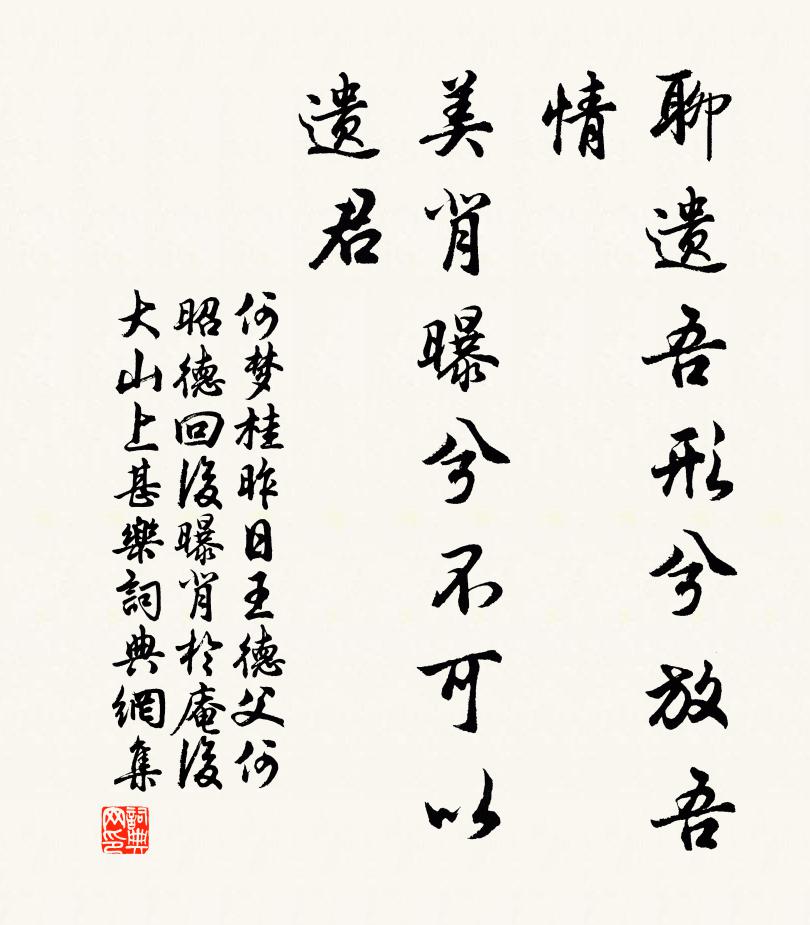 聊遗吾形兮放吾
情
美肖曝兮不可以
遗君
何梦桂昨日王德父何
昭德回後曝肖於庵後
大山上甚樂詞典網集
詞典
网印